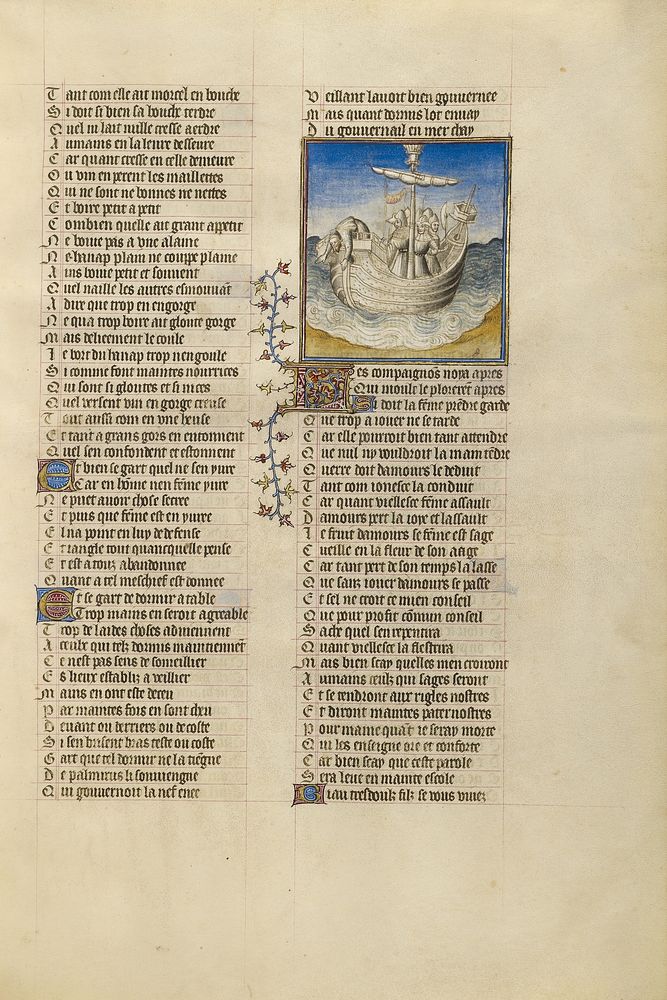 Tant com elle ait morcel en bouche
Si doit si bien sa bouche terdre
Quel ni lait nulle cresse aerdre
Aumains en la leure desseure
Car quant cresse en celle demeure
Ou vin en perent les maillettes
Qui ne sont ne bonnes ne nettes
Et boire petit a petit
Combien quelle ait grant appetit
Ne boiue pas a vne alaine
Ne hanap plain ne couppe plaine
Ains boiue petit et souuent
Quel naille les autres esmouuāt
A dire que trop en engorge
Ne qua trop boire ait gloute gorge
Mais delieement le coule
Le bort du hanap trop nengoule
Si comme font maintes nourrices
Qui sont si gloutes et si nices
Quel versent vin en gorge creuse
Tout aussi com en vne heuse
Et tant a grans gors en entonnent
Quel sen confondent et estonnent
Et bien se gart quel ne sen yure
Car en hōme nen fēme yure
Ne puet auoir chose secree
Et puis que fēme est en yuree
El na point en luy de defense
Et iangle tout quancquelle pense
Et est a touz abandonnee
Quant a tel meschief est donnee
Et se gart de dormir a table
Trop mains en seroit agreable
Trop de laides choses aduiennent
A ceulx qui telz dormirs maintiennēt
Ce nest pas sens de someillier
Es lieux establiz a veillier
Mains en ont este deceu
Par maintes fois en sont cheu
Deuant ou derriere ou de coste
Si sen brisent bras teste ou coste
Gart que tel dormir ne la tiēgne
De palinurus li souuiengne
Qui gouuernoit la nef enee
Veillant lauoit bien gouuernee
Mais quant dormir lot enuay
Du gouuernail en mer chay
Des compaignōs noya apres
Qui moult le plorerēt apres
Si doit la fēme prēdre garde
Que trop a iouer ne se tarde
Car elle pourroit bien tant attendre
Que nul ny vouldroit la main tēdre
Querre doit damours le deduit
Tant com ionesce la conduit
Car quant viellesce fēme assault
Damours pert la ioye et lassault
Le fruit damours se fēme est sage
Cueille en la fleur de son aage
Car tant pert de son temps la lasse
Que sanz iouer damours se passe
Et sel ne croit ce mien conseil
Que pour profit cōmun conseil
Sache quel sen repentira
Quant viellesce la flestrira
Mais bien scay quelles men crouront
Aumains ceulx qui sages seront
Et se tendront aux rigles nostres
Et diront maintes paternostres
Pour mame quāt ie seray morte
Qui les enseigne ore et conforte
Car bien scay que ceste parole
Sera leue en mainte escole
Biau tresdoulz filz se vous viuez